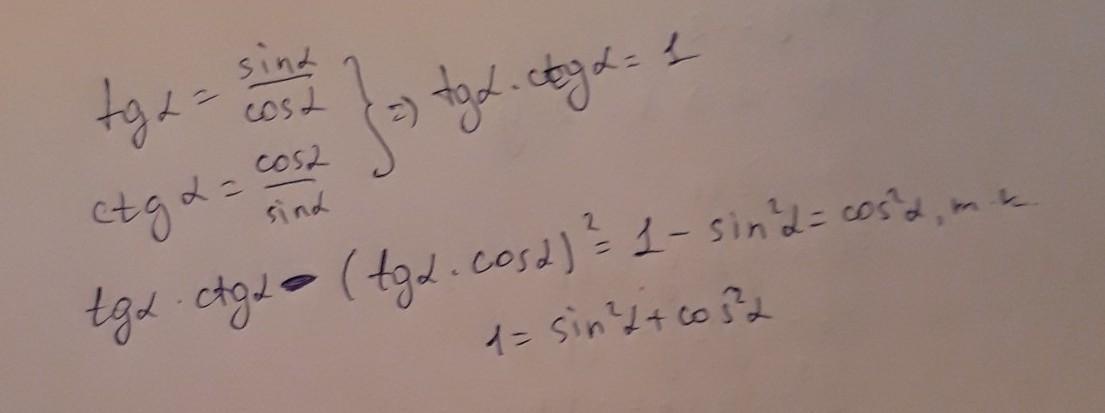 tgα = sinα/cosα } => tgα · ctgα = 1
ctgα = cosα/sinα
tgα · ctgα - (tgα · cosα)² = 1 - sin²α = cos²α, т.к.
1 = sin²α + cos²α